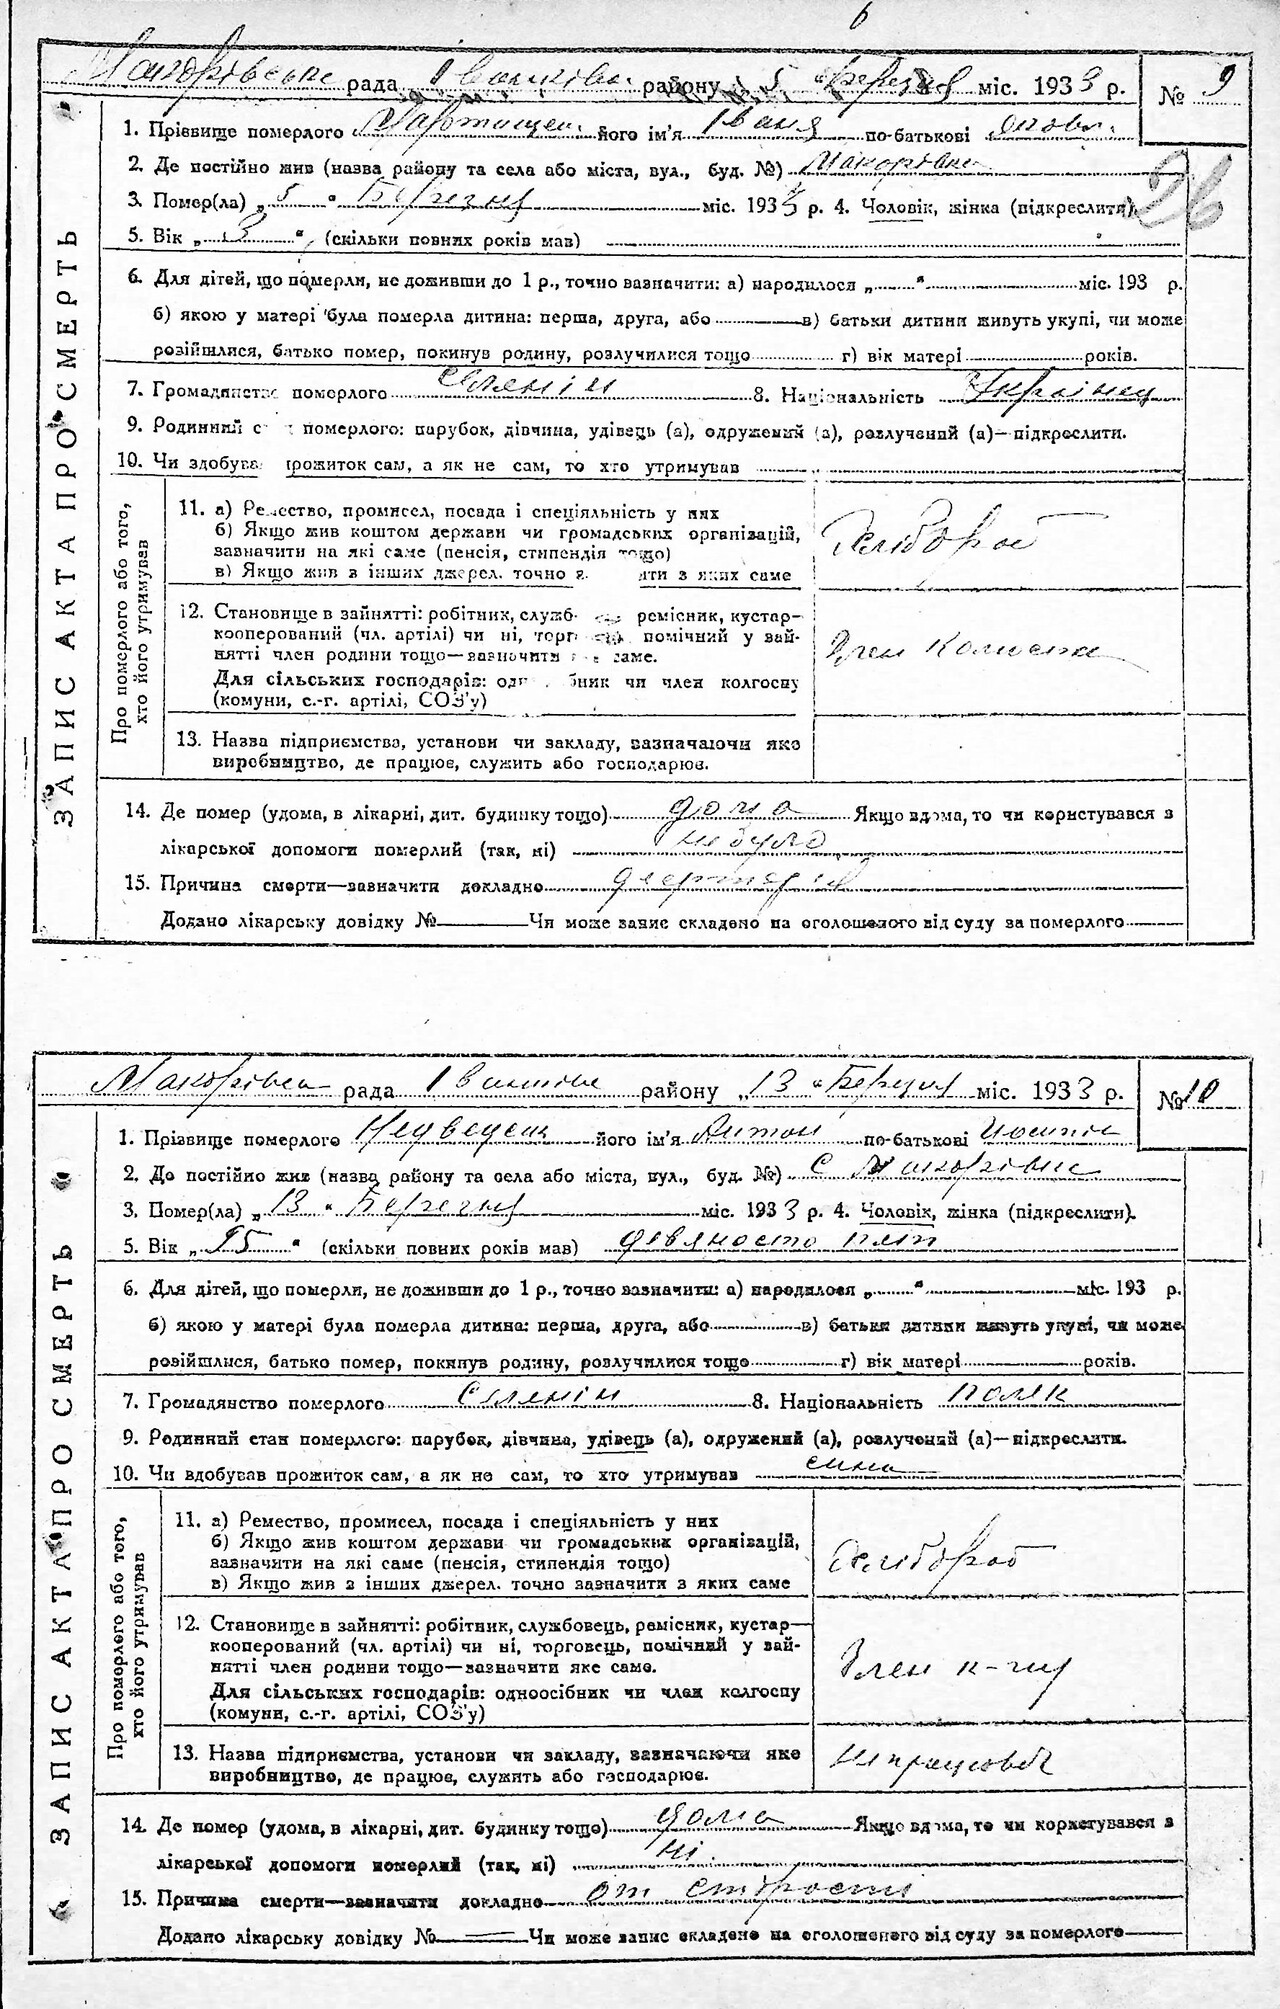 6
рада району 5 Березня міс. 1933 р. № 9
1. Прізвище померлого його ім'я Івана по-батькові
2. Де постійно жив (назва району та села або міста, вул., буд. №) Макорівка
3. Помер(ла) „ 5 " Березня міс. 1933 р. 4. Чоловік, жінка (підкреслити).
26
5. Вік „ 3 ", (скільки повних років мав)
6. Для дітей, що померли, не доживши до 1 р., точно вазначити: а) народилося „ " міс. 193 р.
б) якою у матері була померла дитина: перша, друга, або в) батьки дитини живуть укупі, чи може
розійшлися, батько помер, покинув родину, розлучилися тощо г) вік матері років.
7. Громадянство померлого селянін 8. Національність Українец
9. Родинний с померлого: парубок, дівчина, удівець (а), одружений (а), розлучений (а)—підкреслити.
10. Чи здобува прожиток сам, а як не сам, то хто утримував
ЗАПИС АКТА ПРО СМЕРТЬ
Про померлого або того,
хто його утримував
11. а) Ремество, промисел, посада і спеціяльність у них
б) Якщо жив коштом держави чи громадських організацій,
зазначити на які саме (пенсія, стипендія тощо)
в) Якщо жив з інших джерел. точно з яких саме
Хлібороб
12. Становище в зайнятті: робітник, служб ремісник, кустар—
кооперований (чл. артілі) чи ні, торг помічний у зай-
нятті член родини тощо—вазначити саме.
Для сільських господарів: од бник чи член колгоспу
(комуни, с.-г. артілі, СОЗ'у)
Член
13. Назва підприємства, установи чи закладу, вазначаючи яке
виробництво, де працює, служить або господарює.
14. Де помер (удома, в лікарні, дит. будинку тощо) дома Якщо вдома, то чи користувався з
лікарської допомоги померлий (так, ні) не було
15. Причина смерти—зазначити докладно
Додано лікарську довідку № Чи може запис складено на оголошеного від суду за померлого
рада району „13 " Березня міс. 1933 р. № 10
1. Прізвище померлого Недведець його ім'я Антон по-батькові
2. Де постійно жив (назва району та села або міста, вул., буд. №) с Макорівка
3. Помер(ла) „ 13 " Березня міс. 1933 р. 4. Чоловік, жінка (підкреслити).
5. Вік „ 95 " (скільки повних років мав) девяносто пять
6. Для дітей, що померли, не доживши до 1 р., точно зазначити: а) народилося „ " міс. 193 р.
б) якою у матері була померла дитина: перша, друга, або в) батьки дитини живуть укупі, чи може
розійшлися, батько помер, покинув родину, розлучилися тощо г) вік матері років.
7. Громадянство померлого селянін 8. Національність поляк
9. Родинний стан померлого: парубок, дівчина, удівець (а), одружений (а), розлучений (а)—підкреслити.
10. Чи вдобував прожиток сам, а як не сам, то хто утримував сина
ЗАПИС АКТА ПРО СМЕРТЬ
Про померлого або того,
хто його утримував
11. а) Ремество, промисел, посада і спеціяльність у них
б) Якщо жив коштом держави чи громадських організацій,
вазначити на які саме (пенсія, стипендія тощо)
в) Якщо жив з інших джерел. точно зазначити з яких саме
Хлібороб
12. Становище в зайнятті: робітник, службовець, ремісник, кустар—
кооперований (чл. артілі) чи ні, торговець, помічний у зай-
нятті член родини тощо—зазначити яке саме.
Для сільських господарів: одноосібник чи член колгоспу
(комуни, с.-г. артілі, СОЗ'у)
Член
13. Назва підприємства, установи чи закладу, вазначаючи яке
виробництво, де працює, служить або господарює.
14. Де помер (удома, в лікарні, дит. будинку тощо) дома Якщо вдома, то чи користувався з
лікарської допомоги померлий (так, ні) ні
15. Причина смерти—зазначити докладно от старости
Додано лікарську довідку № Чи може запис складено на оголошеного від суду за померлого